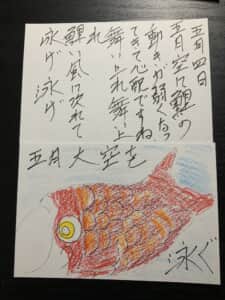 五月四日
五月空に鯉の
動きが弱くなっ
てきて心配ですね
舞い上れ舞い上
れ
鯉い風に吹かれて
泳げ 泳げ
五月大空を
泳ぐ